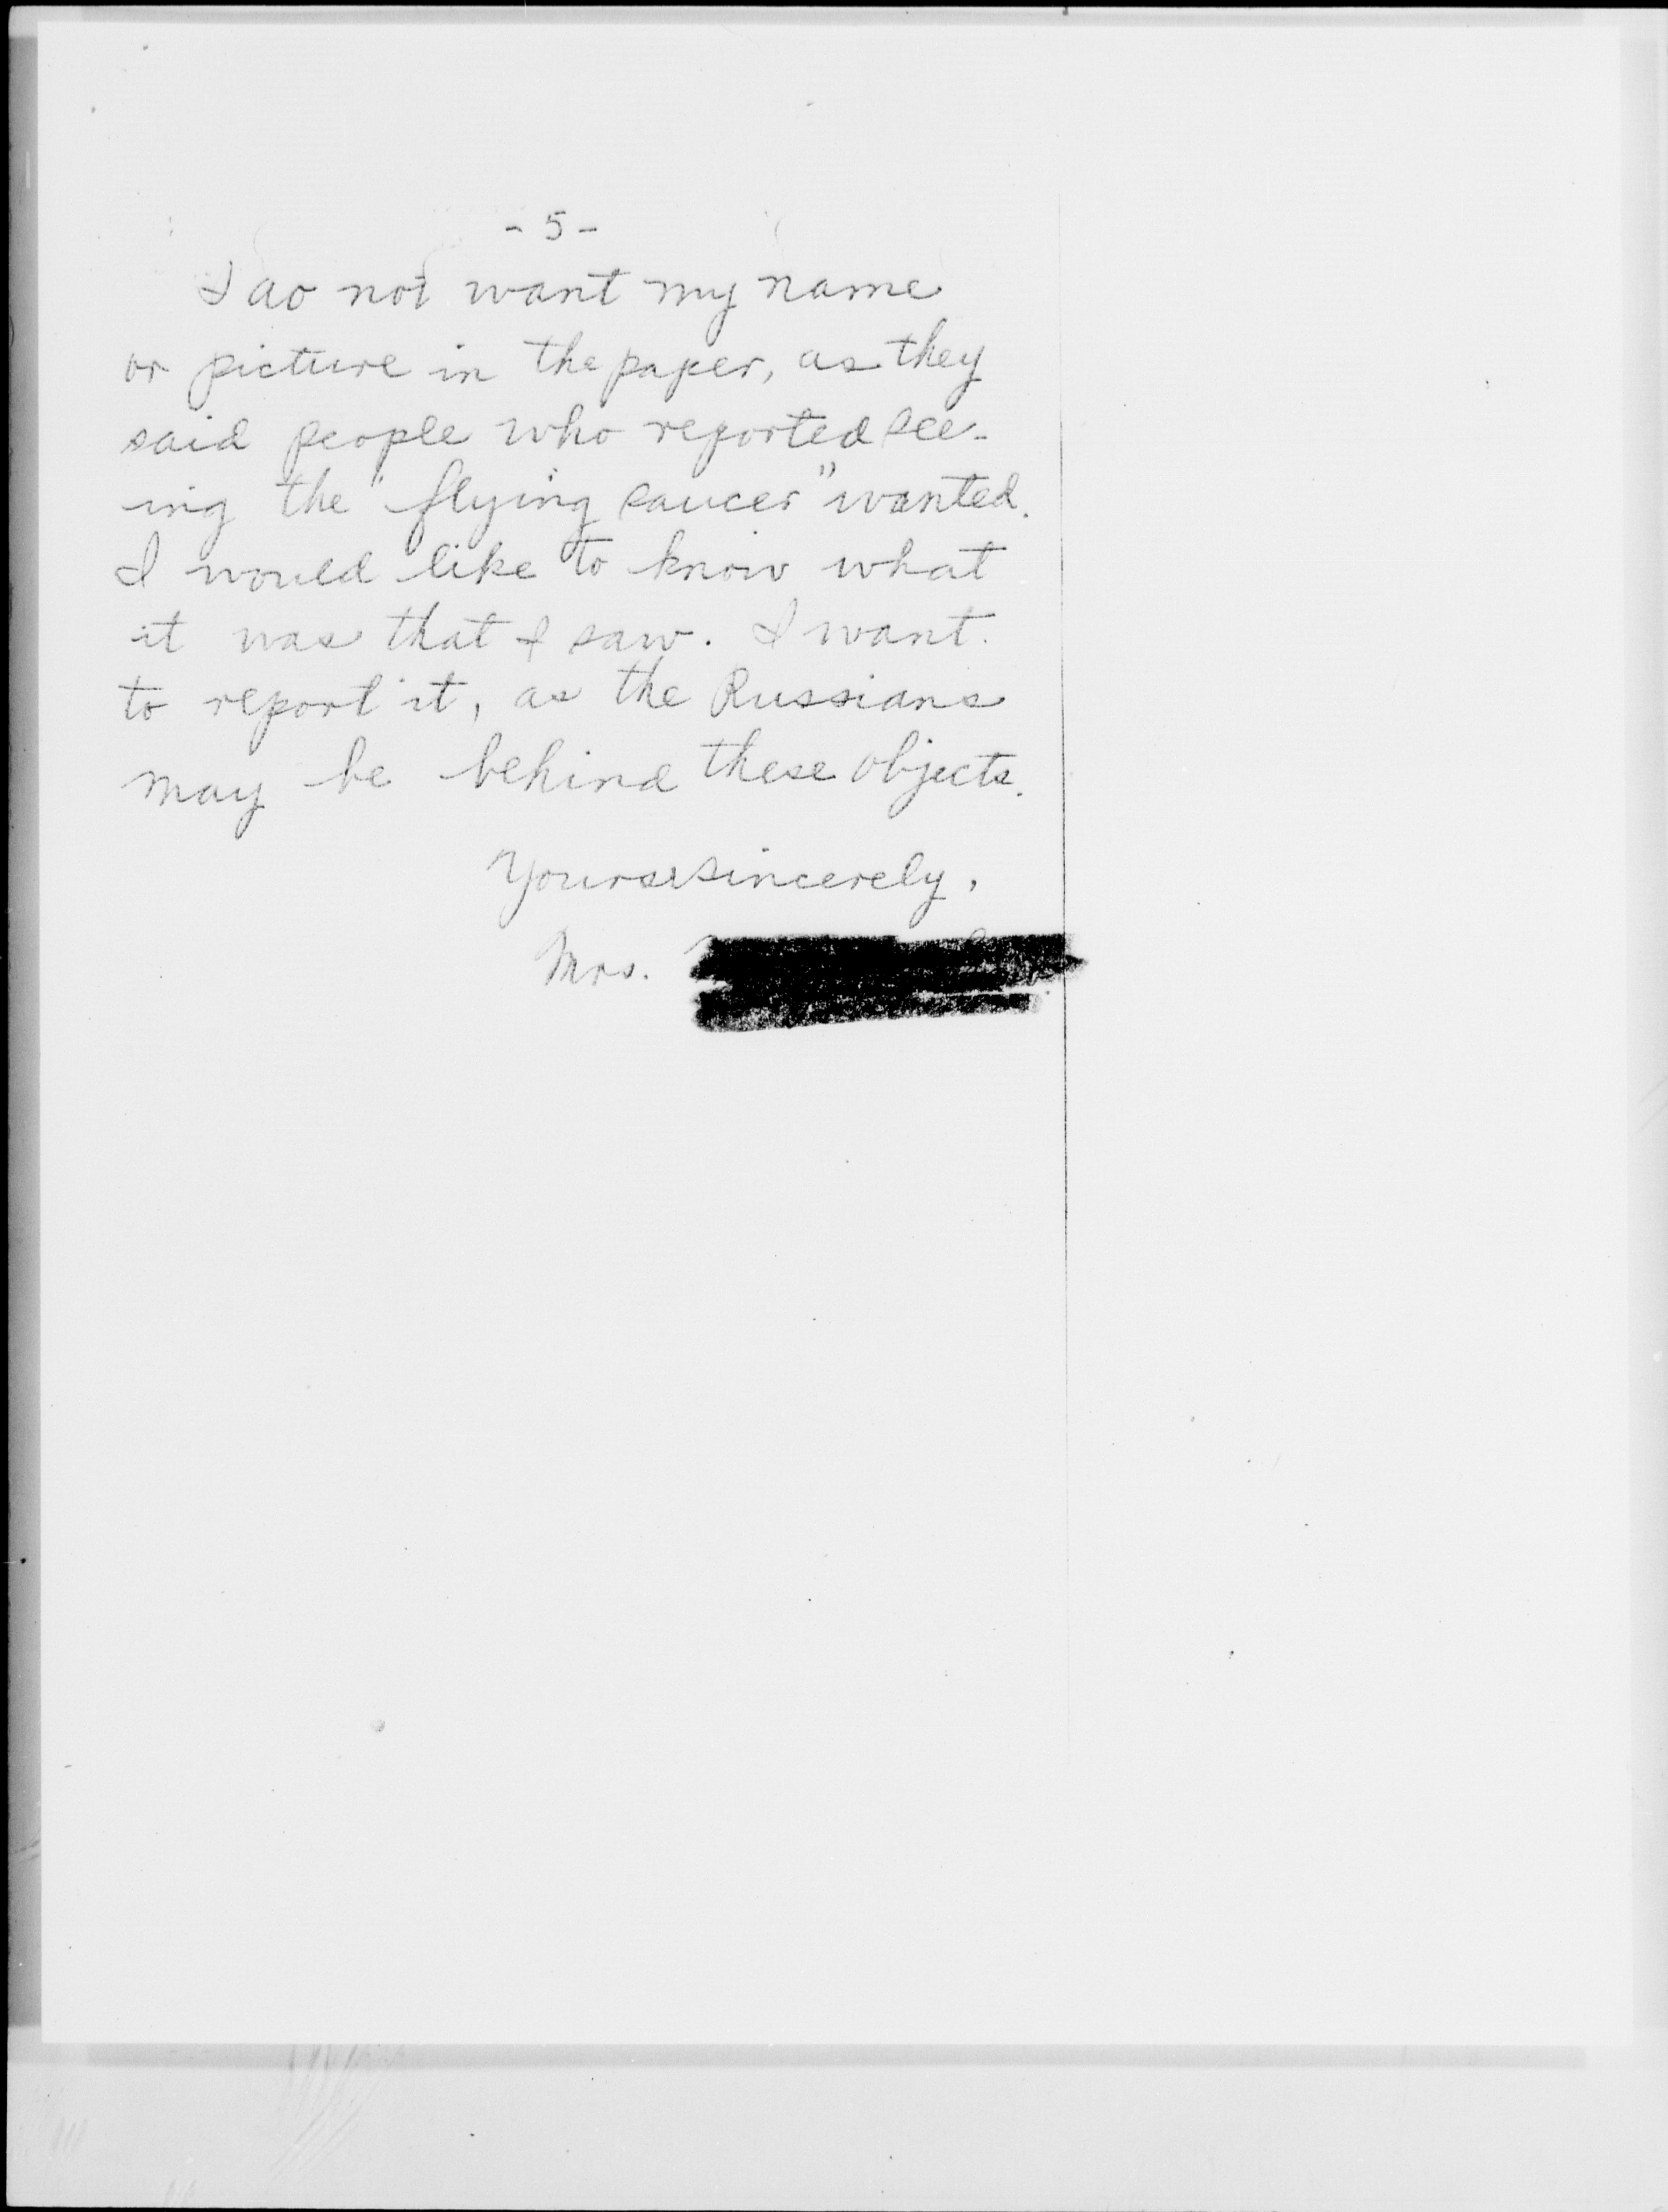 - 5 -
I do not want my name
or picture in the paper, as they
said people who reported see-
ing the "flying saucer" wanted.
I would like to know what
it was that I saw. I want
to report it, as the Russians
may be behind these objects.
Yours sincerely,
Mrs.